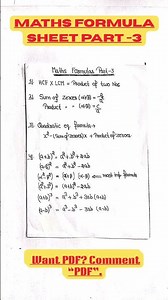 MATHS FORMULA
SHEET PART -3
Maths Formulas Part-3
1) HCF X LCM = Product of two Nos
2) Sum of Zeroes (α+β) = -b/a
Product = (αβ) = c/a
3) Quadratic of formula→
x²-(Sum of zeroes)x + Product of zeroes
4) (a+b)² = a²+b²+2ab
(a-b)² = a²+b²-2ab
(a²-b²) = (a+b) (a-b) ← most Imp formula
(a+b)³ = a³+b³+3ab (a+b)
(a-b)³ = a³-b³-3ab (a-b)
Want PDF? Comment
"PDF".